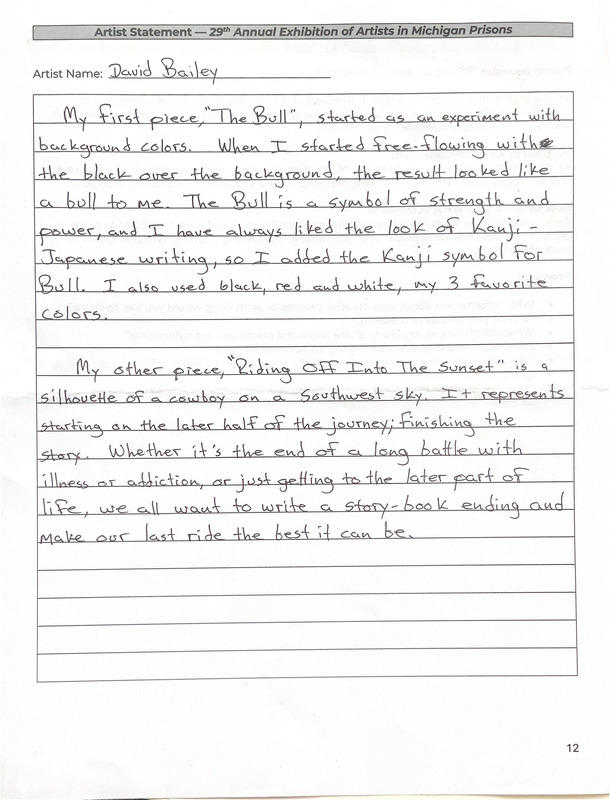 Artist Statement — 29th Annual Exhibition of Artists in Michigan Prisons
Artist Name: David Bailey
My first piece, "The Bull", started as an experiment with
background colors. When I started free-flowing with
the black over the background, the result looked like
a bull to me. The Bull is a symbol of strength and
power, and I have always liked the look of Kanji -
Japanese writing, so I added the Kanji symbol for
Bull. I also used black, red and white, my 3 favorite
colors.
My other piece, "Riding Off Into The Sunset" is a
silhouette of a cowboy on a Southwest sky. It represents
starting on the later half of the journey; finishing the
story. Whether it's the end of a long battle with
illness or addiction, or just getting to the later part of
life, we all want to write a story-book ending and
make our last ride the best it can be.
12